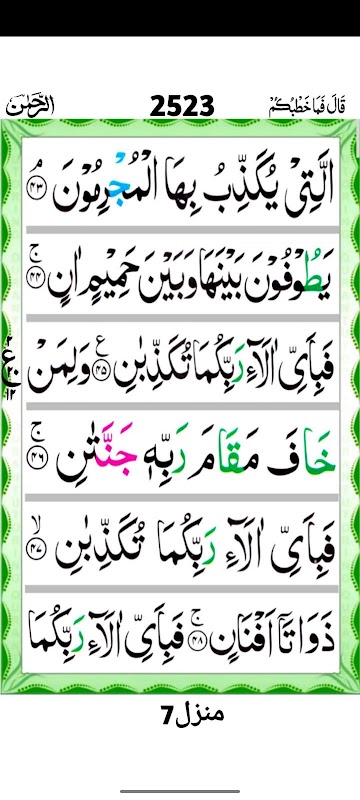 الرّحمٰن 2523 قَالَ فَمَا خَطْبُكُمْ
الَّتِیْ یُكَذِّبُ بِهَا الْمُجْرِمُوْنَ ۘ ﴿۴۳﴾
یَطُوْفُوْنَ بَیْنَهَا وَبَیْنَ حَمِیْمٍ اٰنٍ ۚ ﴿۴۴﴾
فَبِاَیِّ اٰلَآءِ رَبِّكُمَا تُكَذِّبٰنِ ﴿۴۵﴾ ع وَلِمَنْ
خَافَ مَقَامَ رَبِّهٖ جَنَّتٰنِ ۚ ﴿۴۶﴾
فَبِاَیِّ اٰلَآءِ رَبِّكُمَا تُكَذِّبٰنِ ۙ ﴿۴۷﴾
ذَوَاتَاۤ اَفْنَانٍ ۚ ﴿۴۸﴾ فَبِاَیِّ اٰلَآءِ رَبِّكُمَا
منزل7